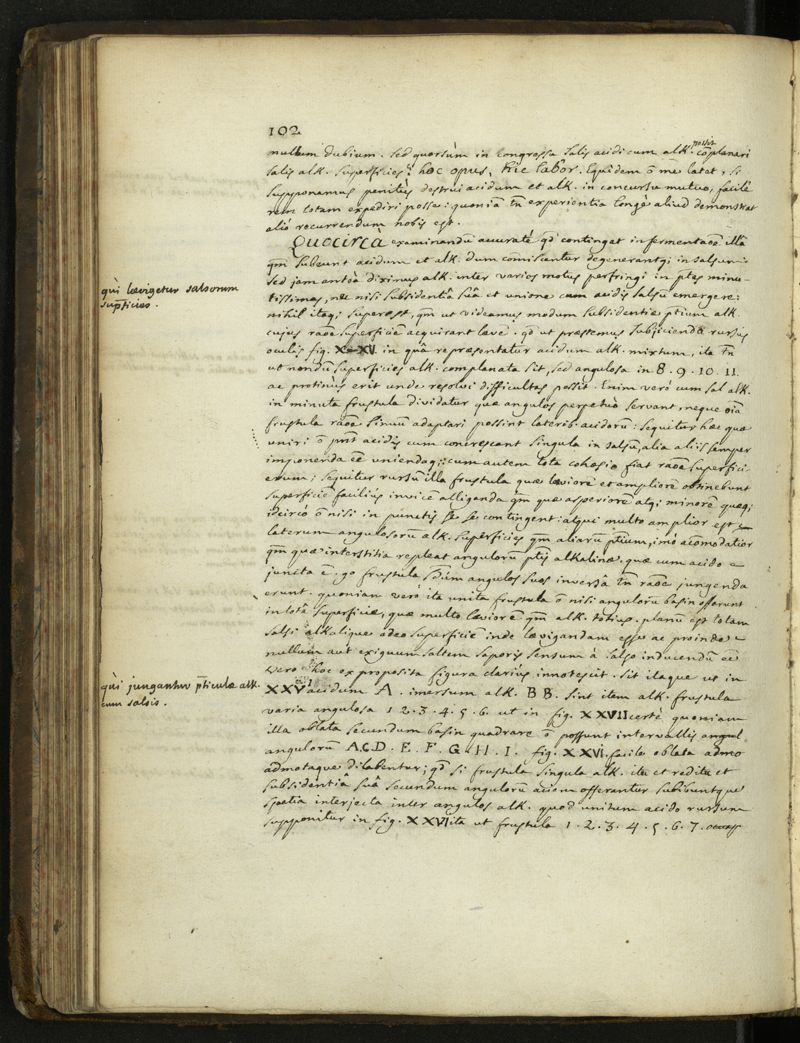 102
nullum dubium. sed quorsùm in congressu salis acidi cum alk. complanari
salis alk. superficies? hoc opus, hic labor. Equidem õ me latet, si
supponamus penitùs destrui acidum et alk. in concursu mutuo, facilè
rem totam expediri posse: quoniã tñ experientia longè aliud demonstrat
aliò recurrendum nobis est.
Quocircà examinandũ accuratè qd contingat in fermentaõe illâ
qm̃ subeunt acidum et alk. dum comiscentur degenerantq; in salsum:
sed jam anteà diximus alk. inter varios motus perfringi in ptes minu-
tissimas, nec nisi subsidentiâ suâ et unione cum acidis salsũ emergere:
nihil itaq; superest, qm̃ ut videamus modum subsidentiæ ptium alk.
cujus raõe superficiẽ acquirant læve. qd ut præstemus subjicienda rursus
oculis fig. XXV in quâ repræsentatur acidum alk. mixtum, ita tñ
ut nondũ superficies alk. complanata sit, sed angulosa in 8. 9. 10. 11.
ac protinùs erit unde resolvi difficultas possit. Enim verò cum sal alk.
in minuta frustula dividatur quæ angulos perpetuò servant, neque oĩa
frustula raõe sinuũ adaptari possint laterib. acidorũ: sequitur hæc quæ
uniri õ pñt acidis cum concrescant singula in salsũ, alia aliis semper
imponenda eẽ uniendaq;: cum autem tota cohæsio fiat raõe superfici-
erum; sequitur rursũ illa frustula quæ læviorẽ et ampliorẽ obtinebunt
superficiẽ faciliùs invicẽ alliganda qm̃ quæ asperiorẽ atq; minorẽ quæq;
idcircò õ nisi in punctis se se contingent: atqui multo amplior est
laterum angulosorũ alk. superficies qm̃ aliarũ ptium, imò acõmodatior
qm̃ quæ interstitia repleat angulorũ ptis alkalinæ. quæ cum acido
juncta ẽ. go frustula sdm̃ angulos suos inversâ tm̃ raõe jungenda
erunt. quoniam verò ita unita frustula õ nisi angulorũ basin offerunt
in totâ superficie, quæ multo læviorẽ qm̃ alk. totius. planũ est totam
salsi alkalique adeo superficiẽ inde lævigandam esse ac proinde
nullum aut exiguum saltem saporis sensum à salso inducendũ eẽ
vero hoc ex proposita figura clarius innotescit. sit itaque ut in
XXVI acidum A. imersum alk. B B. sint item alk. frustula
varia angulosa 1. 2. 3. 4. 5. 6. ut in fig. XXVII certè quoniam
illa oblata secundum basin quadrare õ possunt intervallis angul
angulorũ A. C. D. E. F. G. H. I. fig. XXVI. facile oblata admo
admotaque dilabentur; qd si frustula singula alk. ita et reditu et
subsidentiâ suâ secundum angulorũ aciem offerantur subibuntque
spatia interjecta inter angulos alk. quod unitum acido rursum
supponitur in fig. XXVI ita ut frustula 1. 2. 3. 4. 5. 6. 7.
quì lævigetur salsorum
supficies.
quì jungantur pticulæ alk.
cum salsis.